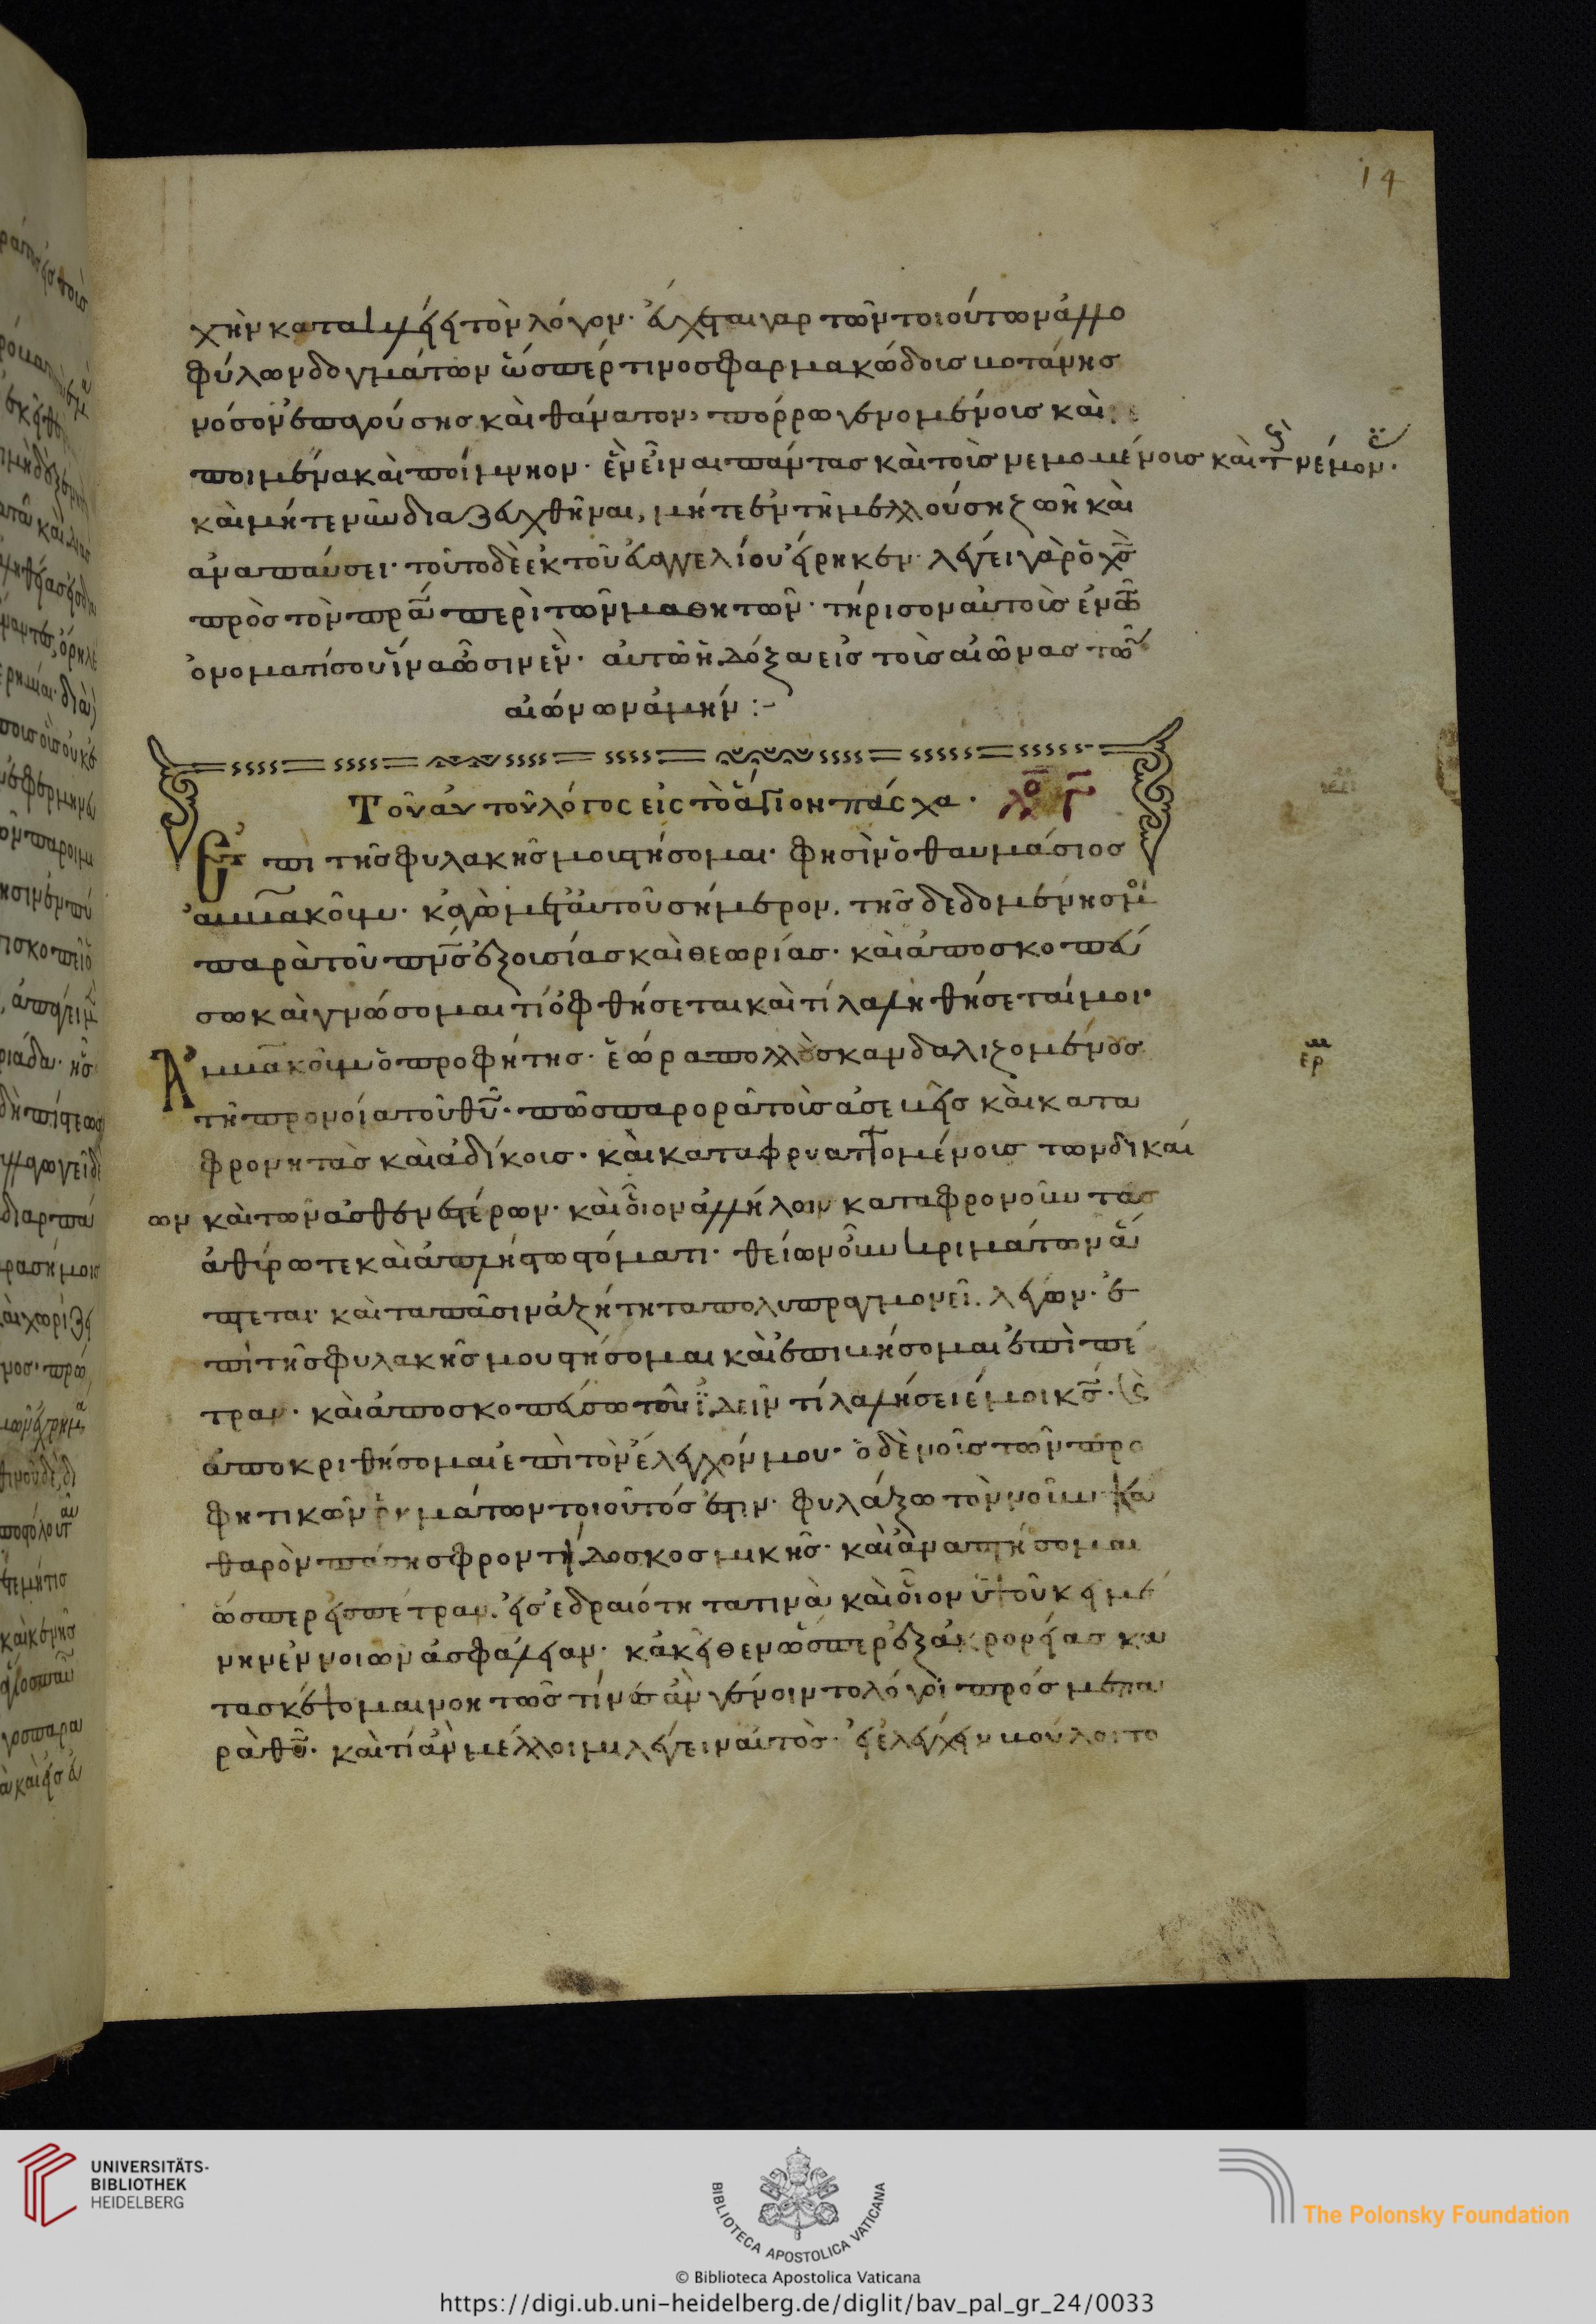 14
χὴν καταβλέψει τὸν λόγον· ἄρχεται γαρ τῶν τοιούτων ἀλλο
φύλων δογμάτων ὥσπέρ τινος φαρμακώδους βοτάνης
νόσον ἐπαγούσης καὶ θάνατον, πόρρω γενομένοις καὶ
ποιμένα καὶ ποίμνιον· ἓν εἶναι πάντας καὶ τοὺς νεμομένοις καὶ τ νέμον·
καὶ μήτε νῦν διαζευχθῆναι, μήτε ἐν τῇ μελλούσῃ ζωῇ καὶ
αναπαύσει· τοῦτο δὲ ἐκ τοῦ εὐαγγελίου εἴρηκεν· λέγει γὰρ ὁ χς
πρὸς τὸν πρα περὶ τῶν μαθητῶν· τήρισον αὐτοὺς ἐν τῶ
ὀνοματί σου ἵνα ὦσιν ἕν· αὐτῶ ἡ δόξα εἰς τοὺς αἰῶνας τῶ
αἰώνων ἀμήν :-
Τοῦ αυ τοῦ λόγος εἰς τὸ ἅγιον πάσχα· λο Γ
Ἐπι τῆς φυλακῆς μου στήσομαι· φησὶν ὁ θαυμάσιος
ἀμβακοῦμ· κἀγὼ μετ αὐτοῦ σήμερον, τῆς δεδομένης μοι
παρὰ τοῦ πνς ἐξουσίας καὶ θεωρίας· καὶ ἀποσκοπεύ
σω καὶ γνώσομαι τί ὀφθήσεται καὶ τί λαληθήσεταί μοι·
Ἀμβακοῦμ ὁ προφήτης· ἑώρα πολλοὺς σκανδαλιζομένους
τῇ προνοία τοῦ θυ· πῶς παρορᾶ τοὺς ἀσεβεῖς καὶ κατα
φρονητὰς καὶ ἀδίκοις· καὶ καταφρυαττομένοις τῶν δικαί
ων καὶ τῶν ἀσθενεστέρων· καὶ οἷον ἀλλήλων καταφρονοῦντας
ἀθύρω τε καὶ ἀπλήστω στόματι· θείων οὖν κριμάτων ἅ
πτεται· καὶ τα πᾶσιν ἀζήτητα πολυπραγμονεῖ· λέγων· ἐ
πὶ τῆς φυλακῆς μου στήσομαι καὶ ἐπιβήσομαι ἐπὶ πέ
τραν· καὶ ἀποσκοπεύσω τοῦ ἰδεῖν τί λαλήσει ἐμοι κς· τί
ἀποκριθήσομαι ἐπὶ τὸν ἔλεγχόν μου· ὁ δὲ νοῦς τῶν προ
φητικῶν ῥημάτων τοιοῦτός ἐστιν· φυλάξω τὸν νοῦν κα
θαρὸν πάσης φροντίδος κοσμικῆς· καὶ ἀναστήσομαι
ὥσπερ εἰς πέτραν, εἰς ἑδραιότητα τινὰ καὶ οἷον
νην ἐννοιῶν ἀσφάλειαν· κἀκεῖθεν ὥσπερ ἐξ ἀκρορείας κα
τασκέψομαι νοητῶς τίνες ἂν γένοιντο λόγοι πρός με πα
ρὰ θυ· καὶ τί ἂν μέλλοιμι λέγειν αὐτὸς· εἰ ἐλέγχειν βούλοιτο
ερ
UNIVERSITÄTS-
BIBLIOTHEK
HEIDELBERG
BIBLIOTECA APOSTOLICA VATICANA
The Polonsky Foundation
© Biblioteca Apostolica Vaticana
https://digi.ub.uni-heidelberg.de/diglit/bav_pal_gr_24/0033